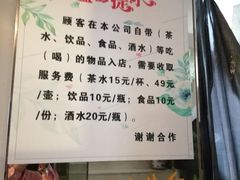 顾客在本公司自带（茶
水、饮品、食品、酒水）等吃
（喝）的物品入店，需要收取
服务费（茶水15元/杯、49元
/壶；饮品10元/瓶；食品10元
/份；酒水20元/瓶）。
谢谢合作